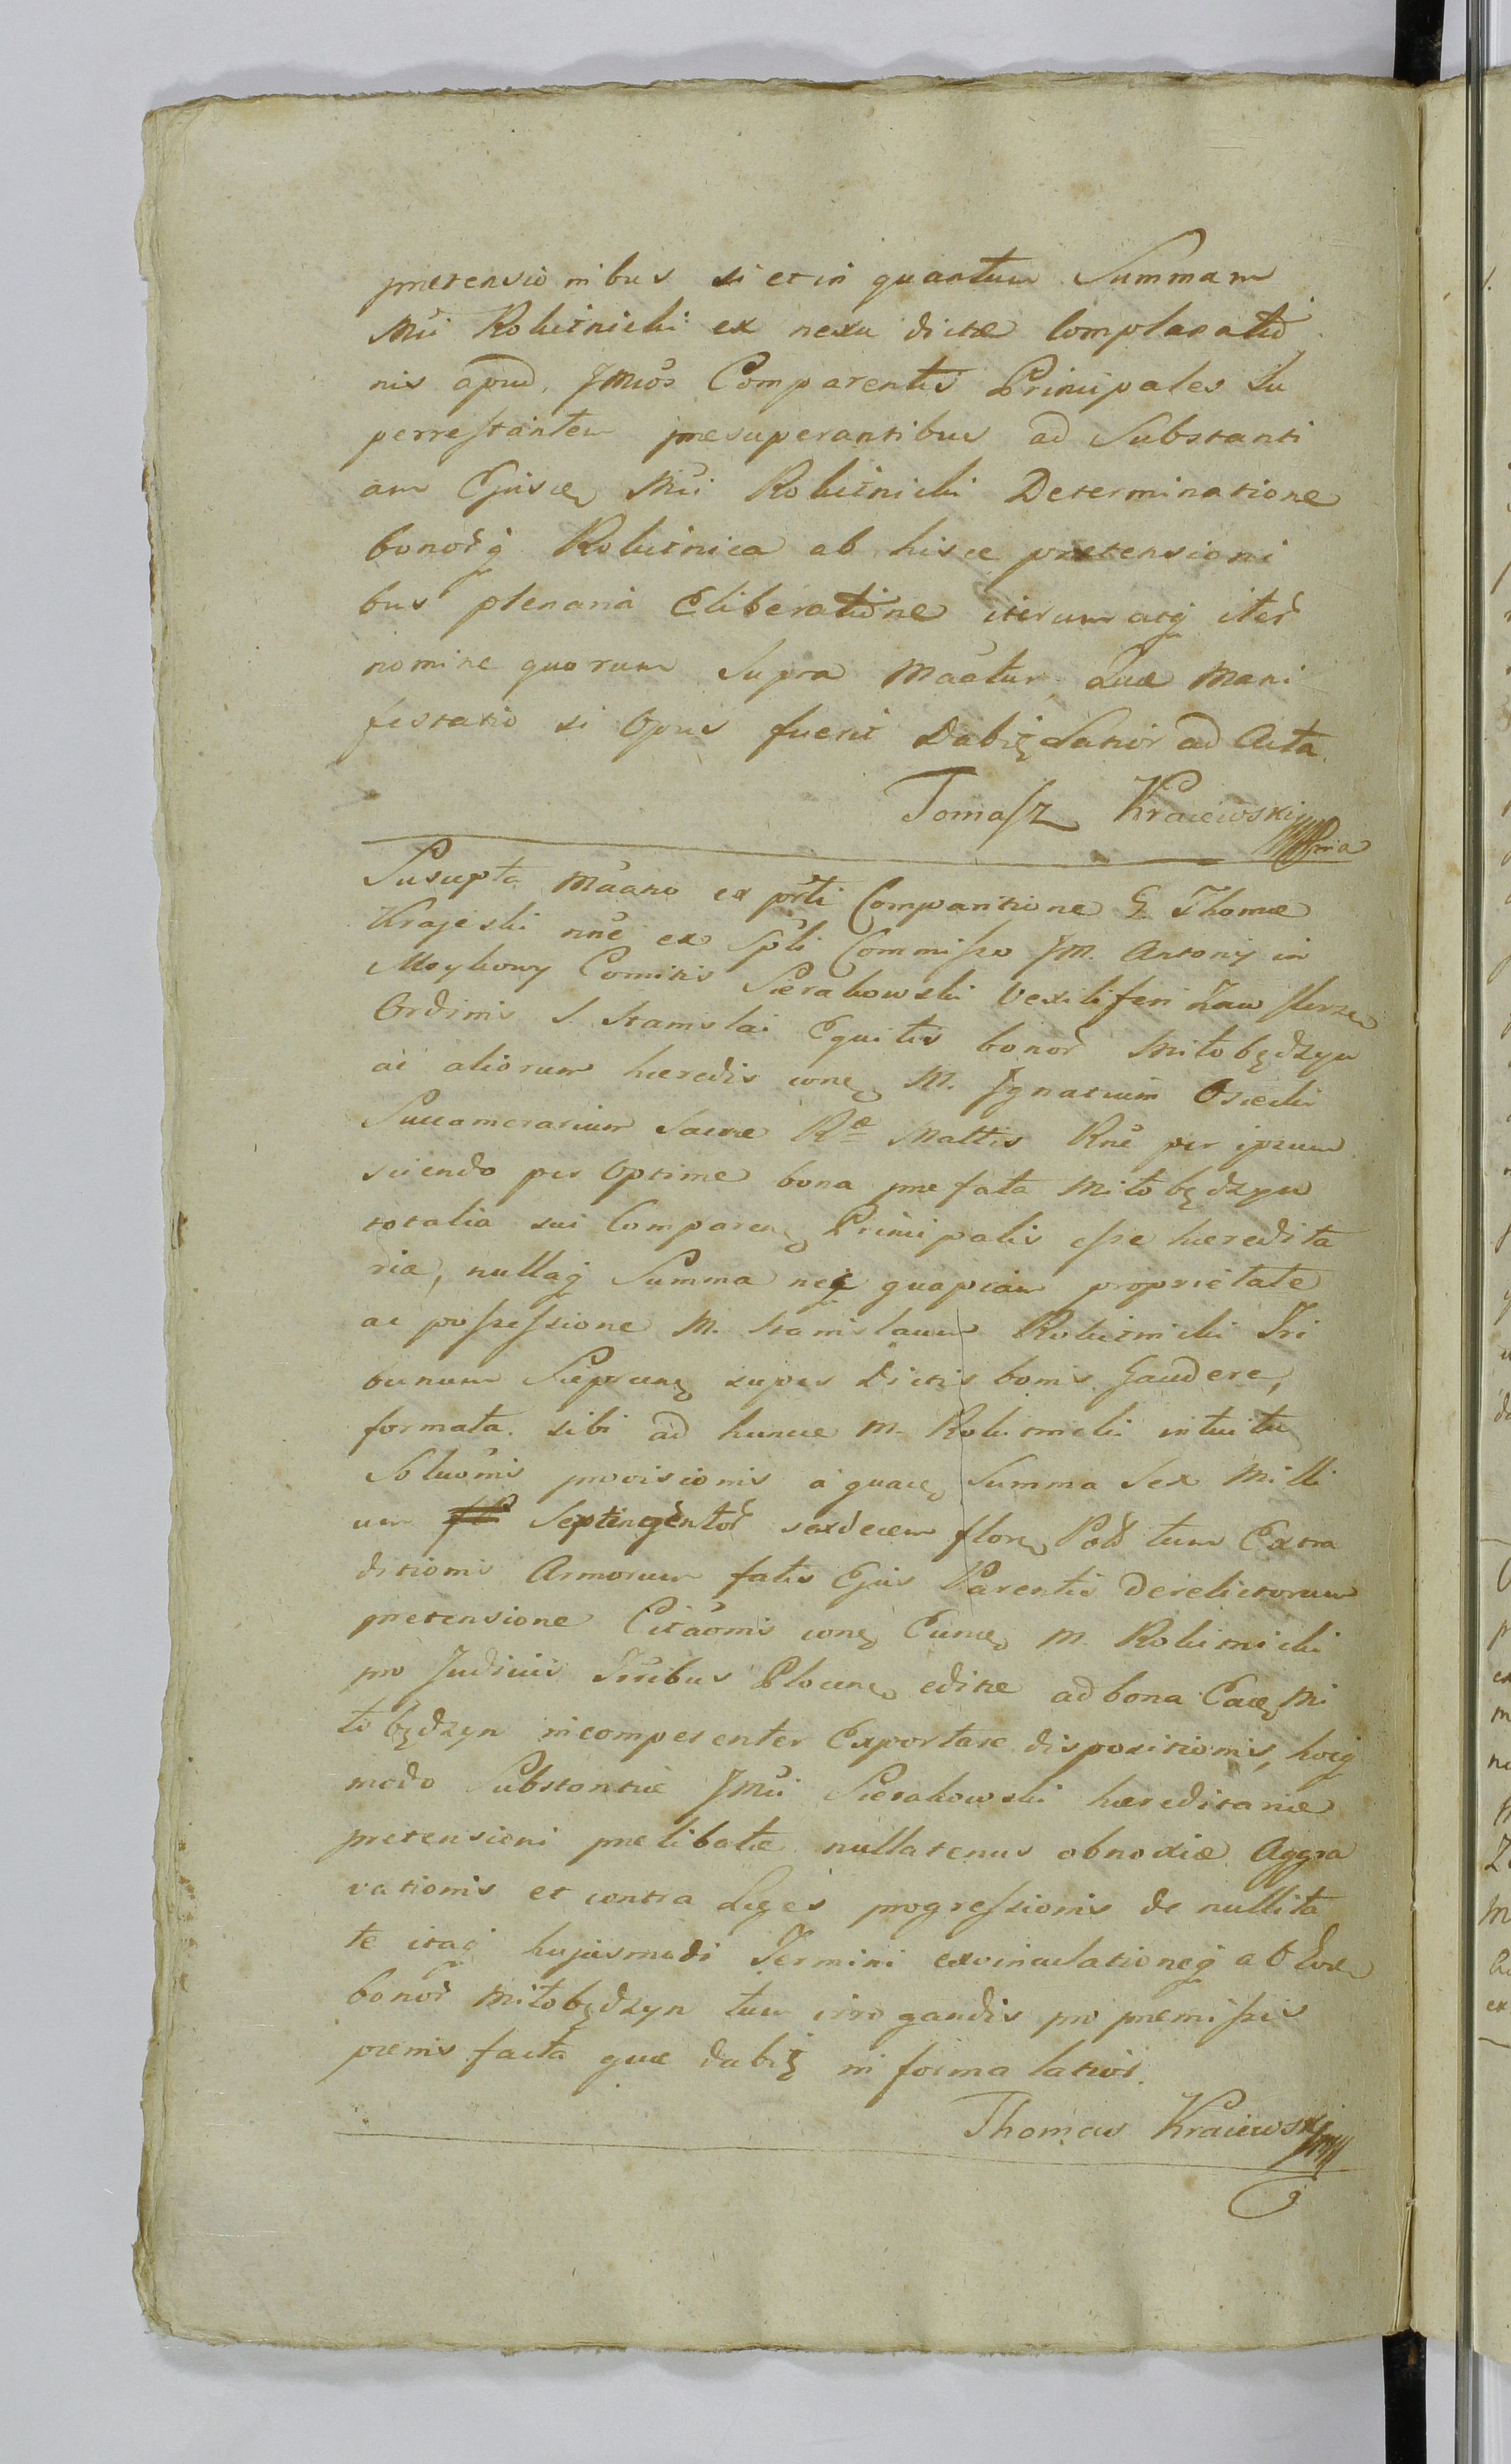 pretensionibus si et in quantum Summam
Mci Rokitnicki ex nexu dictæ Complanatio
nis apud JMcos Comparentis Principales Su
perrestantem presuperantibus ad Substanti
am Ejusdem Mci Rokitnicki Determinatione
bonorq Rokitnica ab hisce pretensioni
bus plenaria Eliberatione iterum atq iter
nomine quorum supra Maatur, Quæ Mani
festatio si Opus fuerit Dabit Latior ad Acta
Tomasz Kraiewski
mpria
Suscepta Maano ex prti Comparitione G. Thomæ
Krajeski nne ex Spli Commisso JM. Antonij in
Moykowy Comitis Sierakowski Vexiliferi Zawskrzen
Ordinis S. Stanislai Equitis bonor Mitobędzyn
ac aliorum hæredis con M. Ignatium Osiecki
Succamerarium Sacræ Ræ Mattis Rne per ipsum
sciendo per Optime bona prefata Mitobędzyn
totalia sui Comparen Principalis esse hæredita
ria, nullaq Summa neq quapiam proprietate
ac possessione M. Stanislaum Rokitnicki Tri
bunum Sieprcen super dictis bonis Gaudere,
formata sibi ad hunce M. Rokitnicki intuitu
Soluonis provisionis a quac Summa Sex Milli
um Septingentor sexdecem floren Pol tum Extra
ditionis Armorum fatis Ejus Parentis Derelictorum
pretensione Citaonis con Eund M. Rokitnicki
pro Judiciis Tribus Plocen editæ ad bona Eade Mi
tobędzyn incompetenter Exportatæ dispositionis, hocq
modo Substantiæ JMci Sierakowski hæreditariæ
pretensioni prelibatæ nullatenus obnoxiæ Aggra
vationis et contra Leges progressionis de nullita
te itaq hujusmodi Termini exvinculationeq ab Eod
bonor Mitobędzyn tum irrogandis pro premissis
pænis facta quæ dabit in forma latior.
Thomas Kraiewski